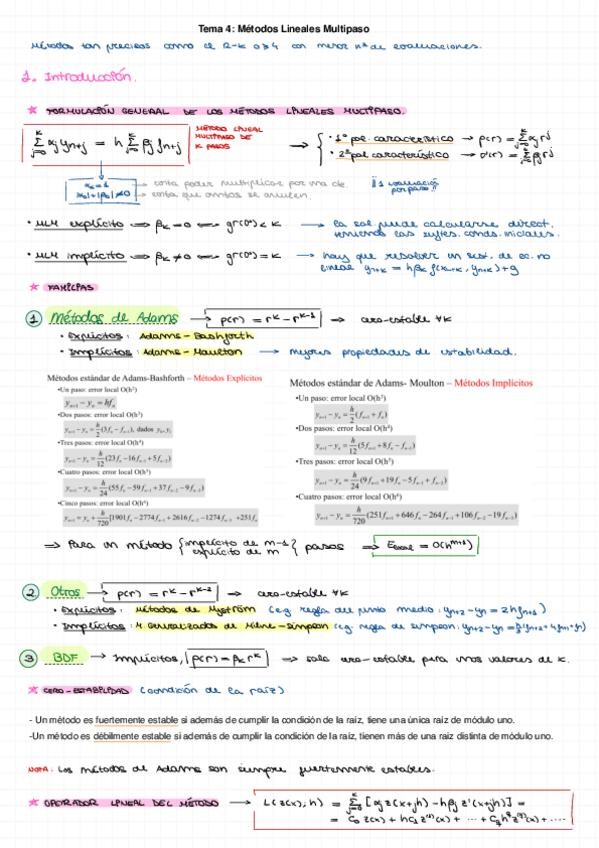 Tema 4: Métodos Lineales Multipaso
Métodos tan precisos como el R-K o≥4 con menor nº de evaluaciones.
1. Introducción.
★ FORMULACIÓN GENERAL DE LOS MÉTODOS LINEALES MULTIPASO.
∑_{j=0}^{k} αj yn+j = h ∑_{j=0}^{k} βj fn+j
MÉTODO LINEAL MULTIPASO DE K PASOS
→ { · 1º pol. característico → ρ(r) = ∑_{j=0}^{k} αj r^j
· 2º pol. característico → σ(r) = ∑_{j=0}^{k} βj r^j
αk = 1 → evita poder multiplicar por una cte.
|α0| + |β0| ≠ 0 → evita que ambos se anulen.
¡¡ 1 evaluación por paso !!
• MLM explícito ⟹ βk = 0 ⟺ gr(σ) < k → la sol. puede calcularse direct. teniendo las suftes. conds. iniciales.
• MLM implícito ⟹ βk ≠ 0 ⟺ gr(σ) = k → hay que resolver un sist. de ec. no lineal yn+k = hβk f(xn+k, yn+k) + g
★ FAMILIAS
① Métodos de Adams → ρ(r) = r^k - r^{k-1} → cero-estable ∀k
• Explícitos: Adams-Bashforth
• Implícitos: Adams-Moulton → mejores propiedades de estabilidad.
Métodos estándar de Adams-Bashforth – Métodos Explícitos
•Un paso: error local O(h²)
yn+1 − yn = hfn
•Dos pasos: error local O(h³)
yn+1 − yn = h/2 (3fn − fn-1), dados y0, y1
•Tres pasos: error local O(h⁴)
yn+1 − yn = h/12 (23fn −16fn-1 + 5fn-2)
•Cuatro pasos: error local O(h⁵)
yn+1 − yn = h/24 (55fn −59fn-1 + 37fn-2 − 9fn-3)
•Cinco pasos: error local O(h⁶)
yn+1 = yn + h/720 [1901fn − 2774fn-1 + 2616fn-2 −1274fn-3 + 251fn
Métodos estándar de Adams- Moulton – Métodos Implícitos
•Un paso: error local O(h³)
yn+1 − yn = h/2 (fn+1 + fn)
•Dos pasos: error local O(h⁴)
yn+1 − yn = h/12 (5fn+1 + 8fn − fn-1)
•Tres pasos: error local O(h⁵)
yn+1 − yn = h/24 (9fn+1 + 19fn − 5fn-1 + fn-2)
•Cuatro pasos: error local O(h⁶)
yn+1 − yn = h/720 (251fn+1 + 646fn − 264fn-1 + 106fn-2 − 19fn-3)
⟹ Para un método { implícito de m-1 / explícito de m } pasos ⟹ Elocal = O(h^{m+1})
② Otros → ρ(r) = r^k - r^{k-2} → cero-estable ∀k
• Explícitos: Métodos de Nyström (e.g. regla del punto medio: yn+2 - yn = 2hfn+1)
• Implícitos: M. Generalizados de Milne-Simpson (e.g. regla de simpson: yn+2 - yn = h/3 (fn+2 + 4fn+1 + fn))
③ BDF → Implícitos, ρ(r) = βk r^k ⟹ solo cero-estable para unos valores de k.
★ CERO-ESTABILIDAD (condición de la raíz)
- Un método es fuertemente estable si además de cumplir la condición de la raíz, tiene una única raíz de módulo uno.
-Un método es débilmente estable si además de cumplir la condición de la raíz, tienen más de una raíz distinta de módulo uno.
NOTA: Los métodos de Adams son siempre fuertemente estables.
★ OPERADOR LINEAL DEL MÉTODO → L(z(x); h) = ∑_{j=0}^{k} [αj z(x+jh) - hβj z'(x+jh)] =
= C0 z(x) + hC1 z'(x) + ··· + Cq h^q z^(q)(x) + ····